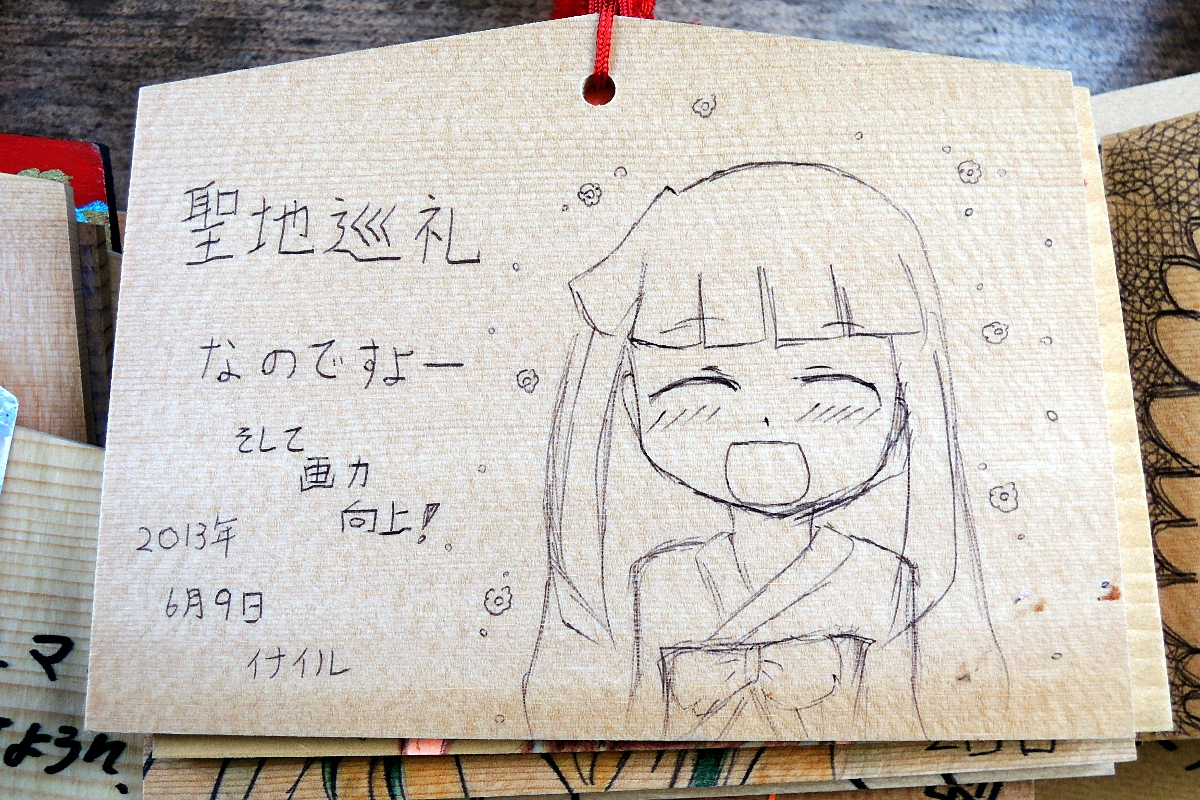 聖地巡礼
なのですよー
そして
画力
向上!
2013年
6月9日
イナイル
マ